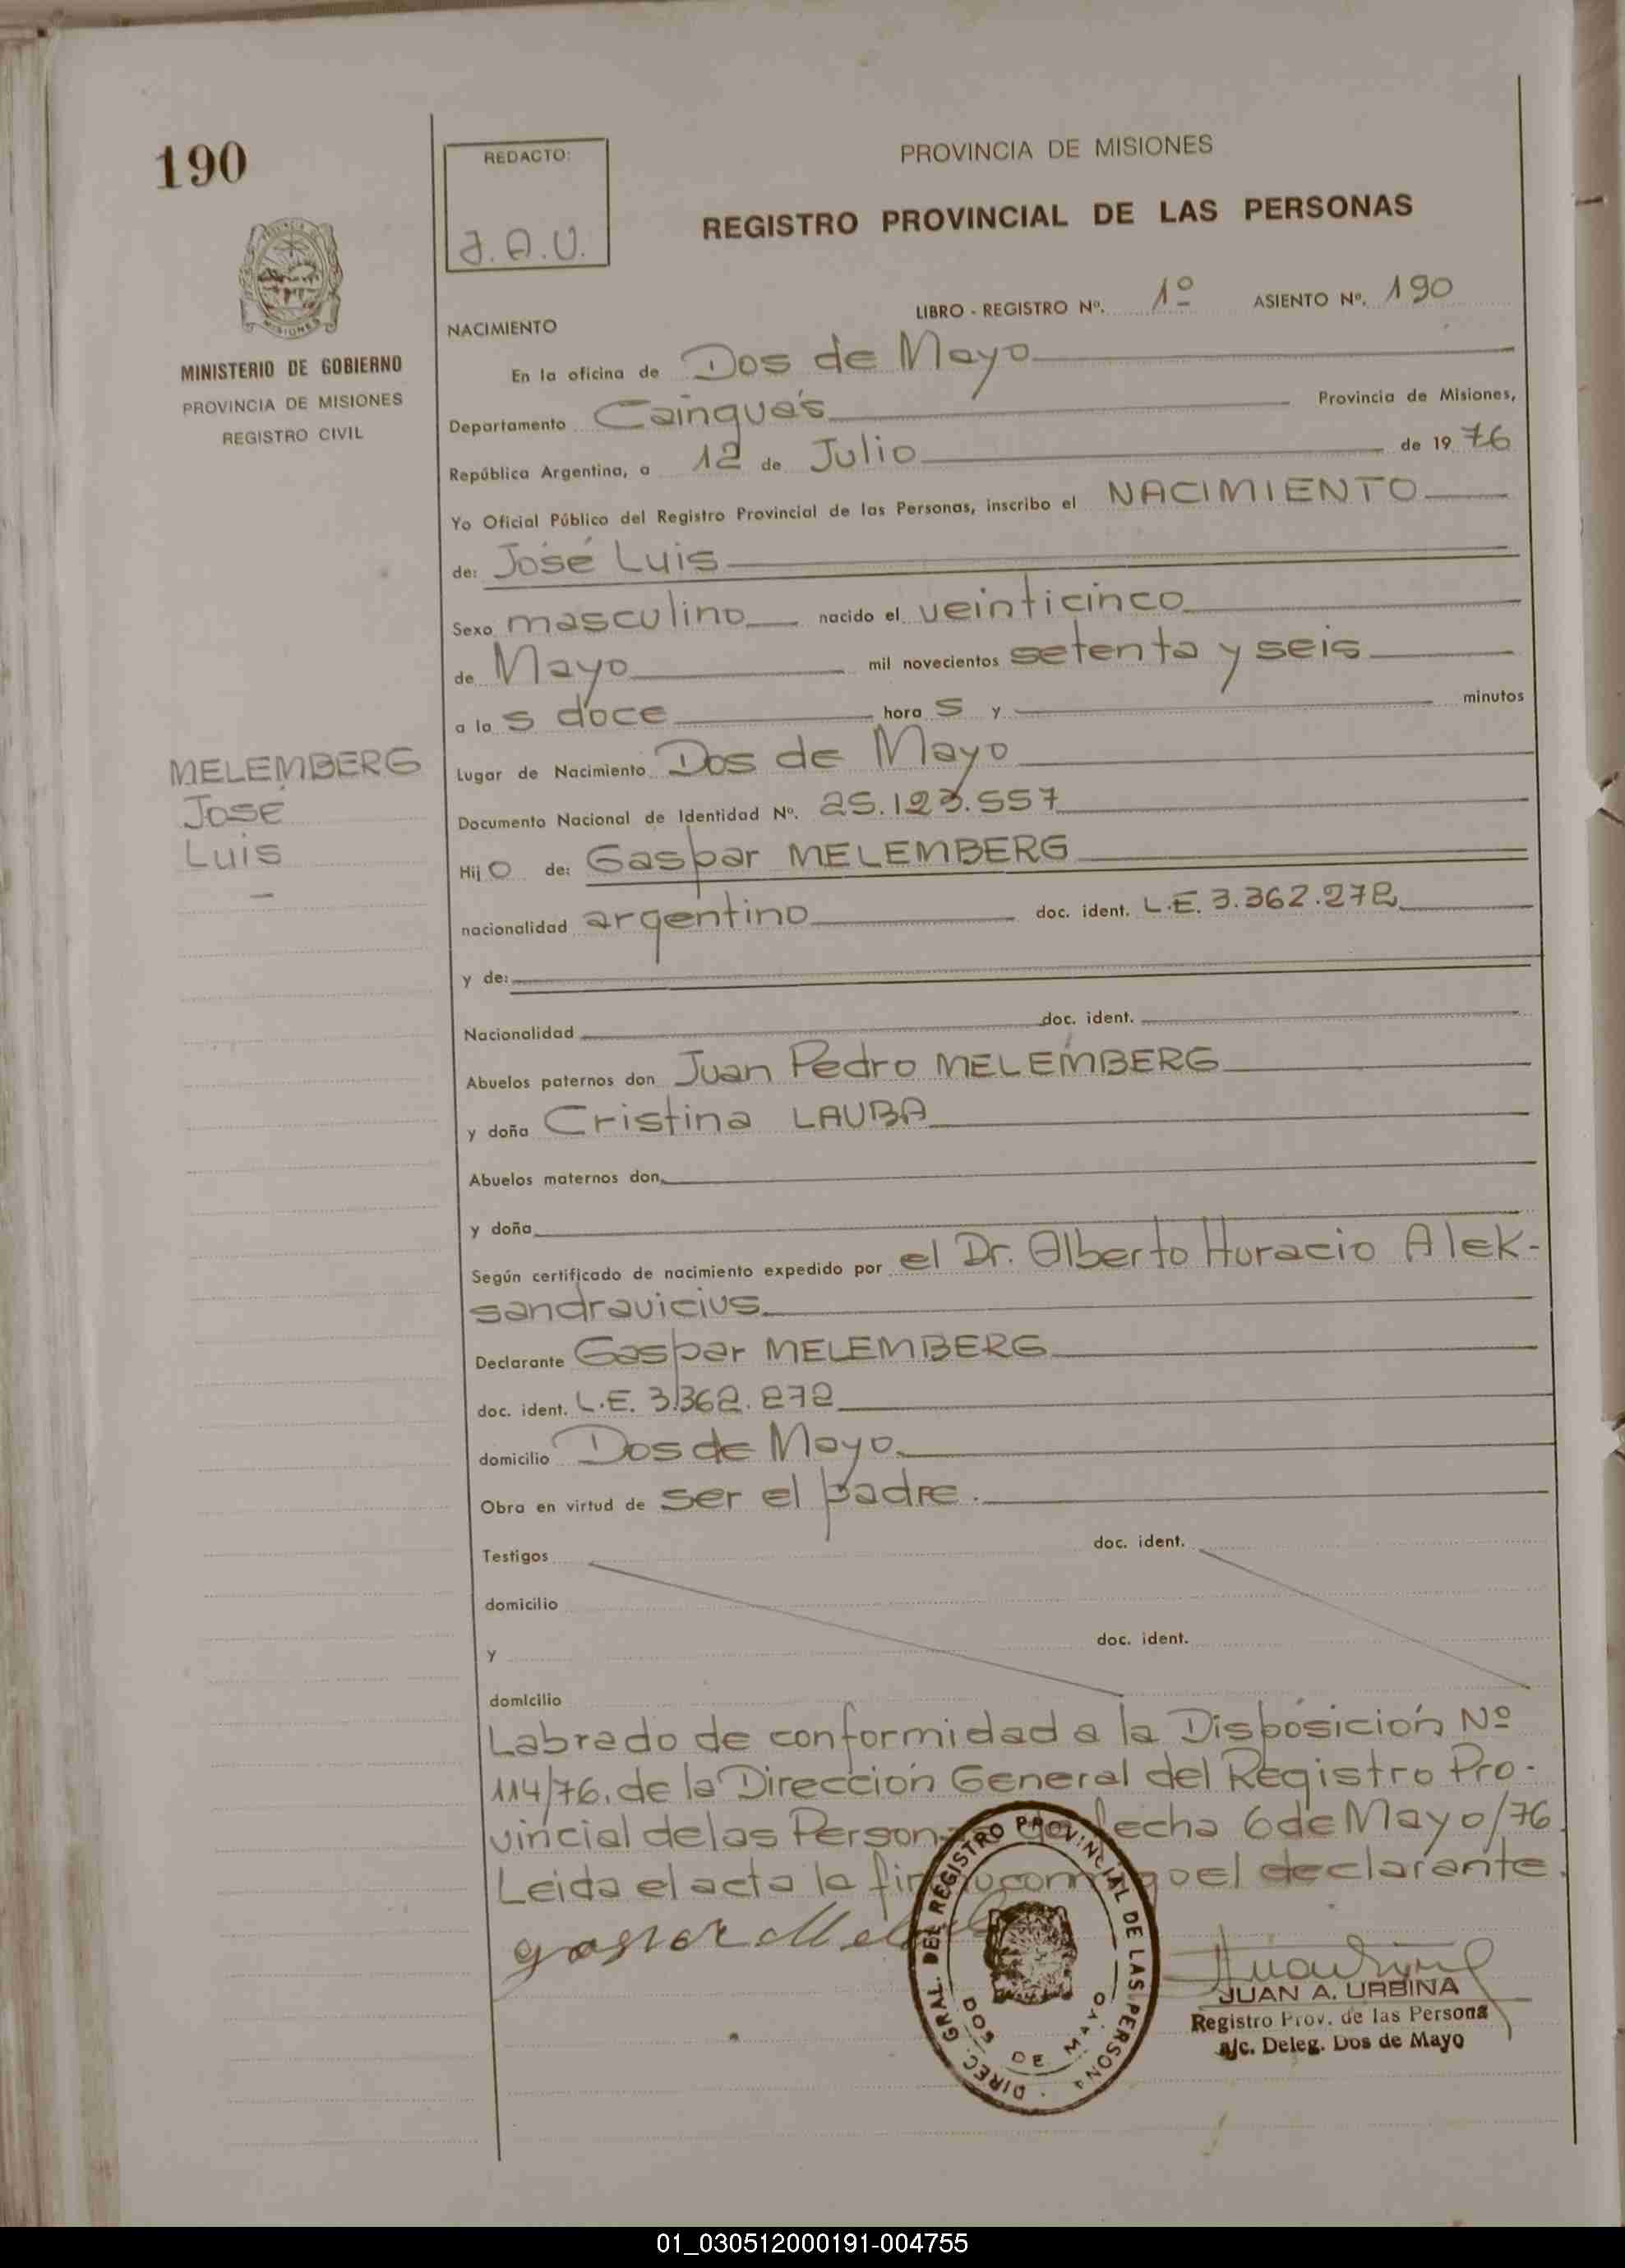 190
REDACTO:
J.A.U.
PROVINCIA DE MISIONES
REGISTRO PROVINCIAL DE LAS PERSONAS
MISIONES
MINISTERIO DE GOBIERNO
PROVINCIA DE MISIONES
REGISTRO CIVIL
LIBRO - REGISTRO Nº. 1º ASIENTO Nº. 190
NACIMIENTO
En la oficina de Dos de Mayo
Departamento Cainguás Provincia de Misiones,
República Argentina, a 12 de Julio de 1976
Yo Oficial Público del Registro Provincial de las Personas, inscribo el NACIMIENTO
de: José Luis
Sexo masculino nacido el veinticinco
de Mayo mil novecientos setenta y seis
a las doce horas y minutos
MELEMBERG
José
Luis
Lugar de Nacimiento Dos de Mayo
Documento Nacional de Identidad Nº. 25.123.557
Hijo de: Gaspar MELEMBERG
nacionalidad argentino doc. ident. L.E. 3.362.272
y de:
Nacionalidad doc. ident.
Abuelos paternos don Juan Pedro MELEMBERG
y doña Cristina LAUBA
Abuelos maternos don
y doña
Según certificado de nacimiento expedido por el Dr. Alberto Huracio Alek-
sandravicius
Declarante Gaspar MELEMBERG
doc. ident. L.E. 3.362.272
domicilio Dos de Mayo
Obra en virtud de ser el padre.
Testigos doc. ident.
domicilio
y doc. ident.
domicilio
Labrado de conformidad a la Disposición Nº
114/76. de la Dirección General del Registro Pro-
vincial de las Personas de fecha 6 de Mayo/76.
Leida el acta la firma conmigo el declarante.
DIREC. GRAL. DEL REGISTRO PROVINCIAL DE LAS PERSONA
DOS DE MAYO
JUAN A. URBINA
Registro Prov. de las Persona
a/c. Deleg. Dos de Mayo
01_030512000191-004755